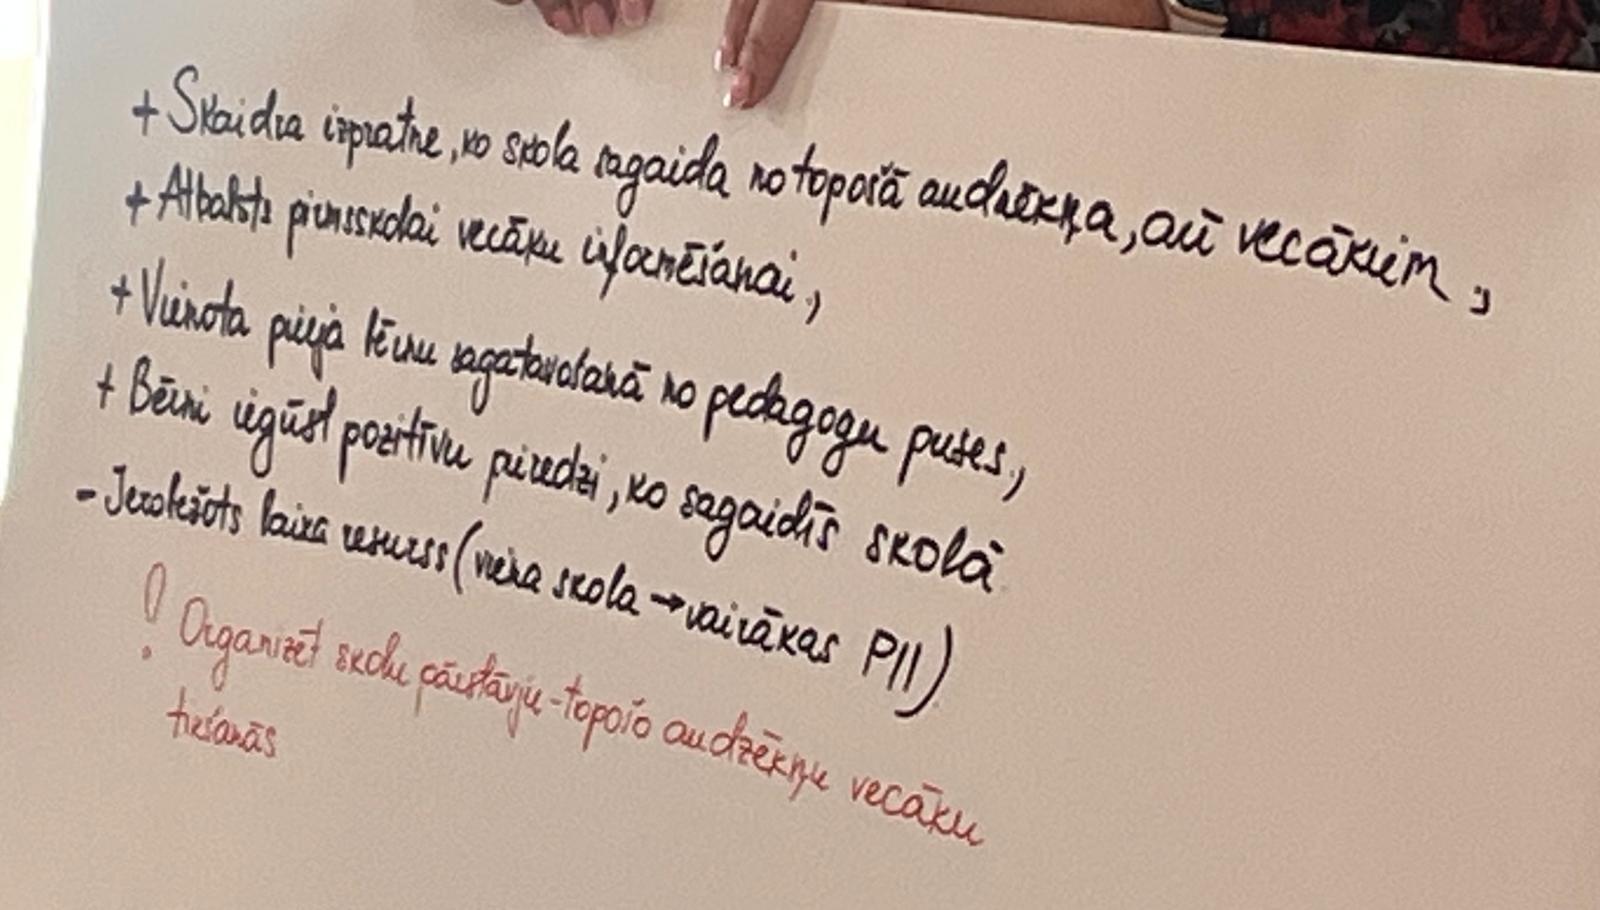 + Skaidra izpratne, ko skola sagaida no topošā audzēkņa, arī vecākiem,
+ Atbalsts pirmsskolai vecāku informēšanai,
+ Vienota pieeja bērnu sagatavošanā no pedagogu puses,
+ Bērni iegūst pozitīvu pieredzi, ko sagaidīs skolā
- Ierobežots laika resurss (viena skola → vairākas PII)
! Organizēt skolu pārstāvju - topošo audzēkņu vecāku
tikšanās